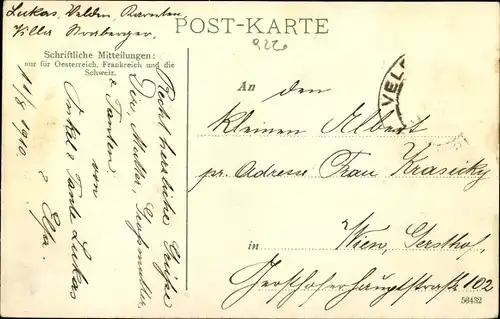 Lukas, Velden, Kärnten,
Villa
POST-KARTE
Schriftliche Mitteilungen:
nur für Oesterreich, Frankreich und die
Schweiz.
11/8 1910
Recht herzliche Grüße
Dir, Mutter, Großmutter
& Tanten
von
Onkel & Tante Lukas
&
VELD
An den
kleinen Albert
pr. Adresse Frau Krasicky
in Wien, Gersthof,
Gersthoferhauptstraße 102
56432